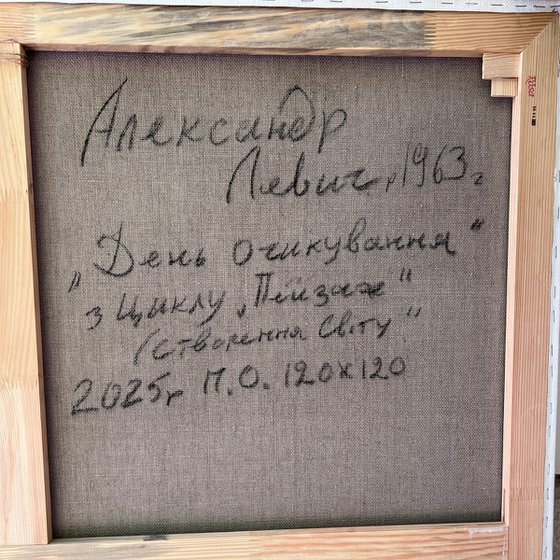 Александр
Левич р1963г
„День очикування“
з циклу „Пейзаж“
/створення світу“
2025р П.О. 120х120